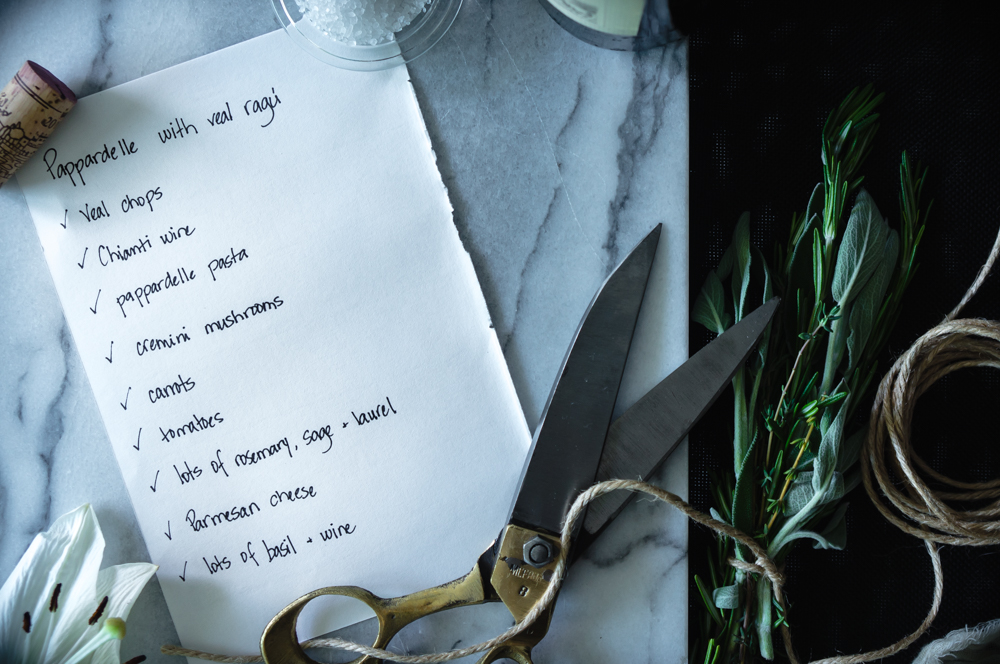 Pappardelle with veal ragú
✓ Veal chops
✓ Chianti wine
✓ pappardelle pasta
✓ cremini mushrooms
✓ carrots
✓ tomatoes
✓ lots of rosemary, sage + laurel
✓ Parmesan cheese
✓ lots of basil + wine
8